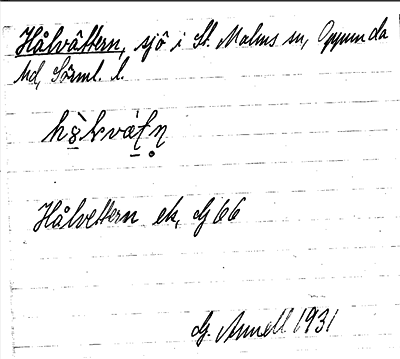 Hålvättern, sjö i St. Malms sn, Oppunda
hd, Sörml. l.
Hålvettern ek, dj 66
dj. Annell 1931